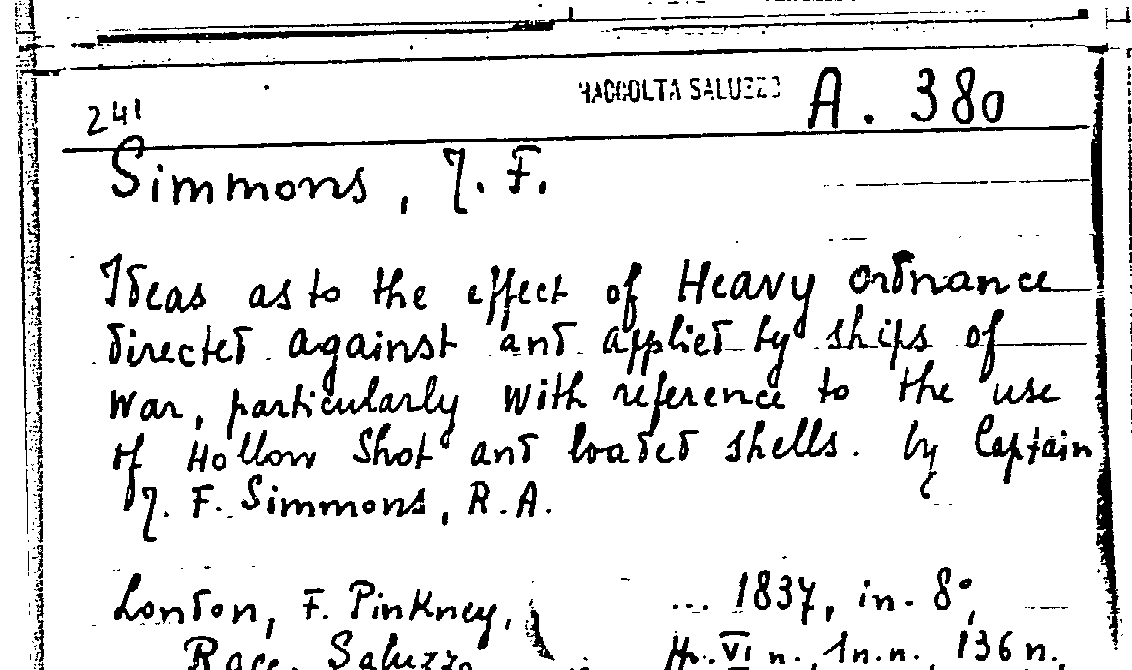 RACCOLTA SALUZZO A. 380
241
Simmons, J. F.
Ideas as to the effect of Heavy ordnance
directed against and applied by ships of
War, particularly with reference to the use
of Hollow Shot and loaded shells. by Captain
J. F. Simmons, R.A.
London, F. Pinkney, ... 1837, in-8°,
Racc. Saluzzo VI n., 1 n.n., 136 n.